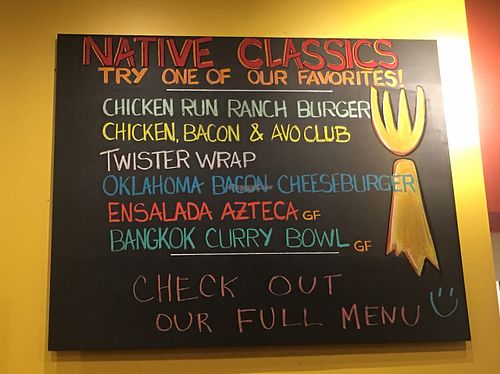 NATIVE CLASSICS
TRY ONE OF OUR FAVORITES!
CHICKEN RUN RANCH BURGER
CHICKEN, BACON & AVO CLUB
TWISTER WRAP
OKLAHOMA BACON CHEESEBURGER
ENSALADA AZTECA GF
BANGKOK CURRY BOWL GF
CHECK OUT
OUR FULL MENU